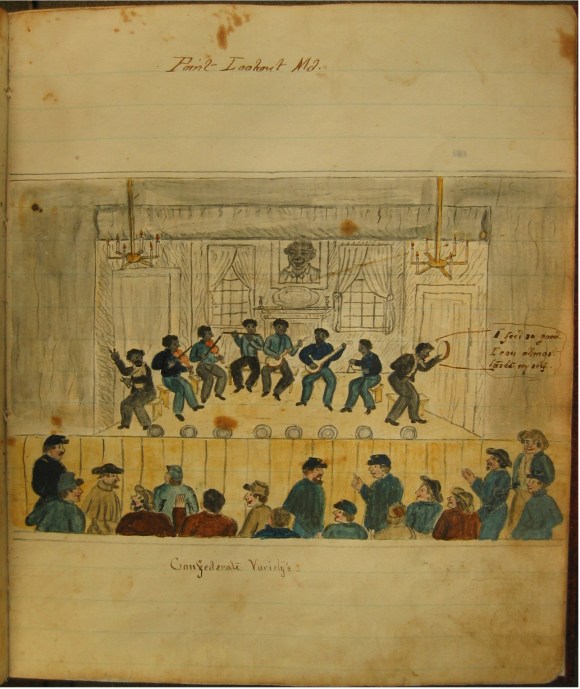 Point Lookout Md.
I feel so good
I can almos
taste my self.
Confederate Variety's.